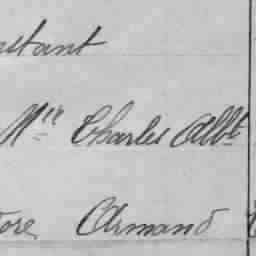 nstant
Mie Charles Albt
ore Armand